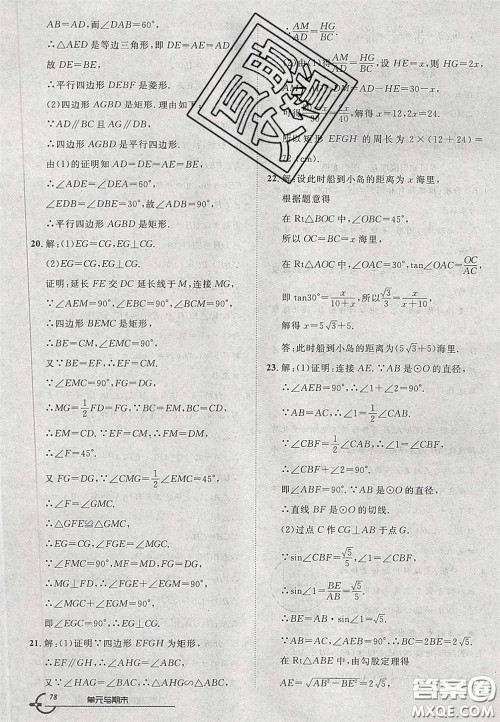 AB=AD,而∠DAB=60°,
∴△AED是等边三角形,即DE=AE=AD
故DE=BE,
∴平行四边形DEBF是菱形.
(2)四边形AGBD是矩形.理由如下
∵AD∥BC且AG∥DB,
∴四边形AGBD是平行四边形.
由(1)的证明知AD=DE=AE=BE,
∴∠ADE=∠DEA=60°,
∠EDB=∠DBE=30°,故∠ADB=90°,
∴平行四边形AGBD是矩形.
20.解:(1)EG=CG,EG⊥CG.
(2)EG=CG,EG⊥CG.
证明:延长FE交DC延长线于M,连接MG,
∵∠AEM=90°,∠EBC=90°,∠BCM=90°,
∴四边形BEMC是矩形.
∴BE=CM,∠EMC=90°,
又∵BE=EF,∴EF=CM.
∵∠EMC=90°,FG=DG,
∴MG=1/2FD=FG,∵BC=EM,BC=CD,
∴EM=CD.∵EF=CM,∴FM=DM,
∴∠F=45°.
又FG=DG,
∵∠CMG=1/2∠EMC=45°,
∴∠F=∠GMC.
∴△GFE≌△GMC.
∴EG=CG,∠FGE=∠MGC,
∵∠FMC=90°,MF=MD,FG=DG,
∴MG⊥FD,∴∠FGE+∠EGM=90°,
∴∠MGC+∠EGM=90°,
即∠EGC=90°,∴EG⊥CG.
21.解:(1)证明∵四边形EFGH为矩形,
AM/AD=HG/BC
(2)由(1)得AM/AD=HG/BC,设HE=x,则HG=2x,
解得x=12,2x=24.
所以矩形EFGH的周长为2×(12+24)=
72(cm)
22.解:设此时船到小岛的距离为x海里,
根据题意得
在Rt△BOC中,∠OBC=45°
所以OC=OB=x海里,
在Rt△AOC中,∠OAC=30°,tan∠OAC=OC/AO
即tan30°=x/(10+x),所以√3/3=x/(x+10).
解得x=5√3+5.
答:此时船到小岛的距离为(5√3+5)海里.
23.解:(1)证明:连接AE.∵AB是⊙O的直径,
∴∠AEB=90°,∴∠1+∠2=90°.
∵AB=AC,∴∠1=1/2∠CAB.
∵∠CBF=1/2∠CAB,∴∠1=∠CBF,
∴∠CBF+∠2=90°.
即∠ABF=90°.∵AB是⊙O的直径,
∴直线BF是⊙O的切线.
(2)过点C作CG⊥AB于点G.
∵sin∠CBF=√5/5,∠1=∠CBF,
∴sin∠1=√5/5.∵sin∠1=BE/AB=√5/5,
∴AE=AB·sin∠1=√5.
在Rt△ABE中,由勾股定理得
78 单元与期末
答案圈
MXQE.COM